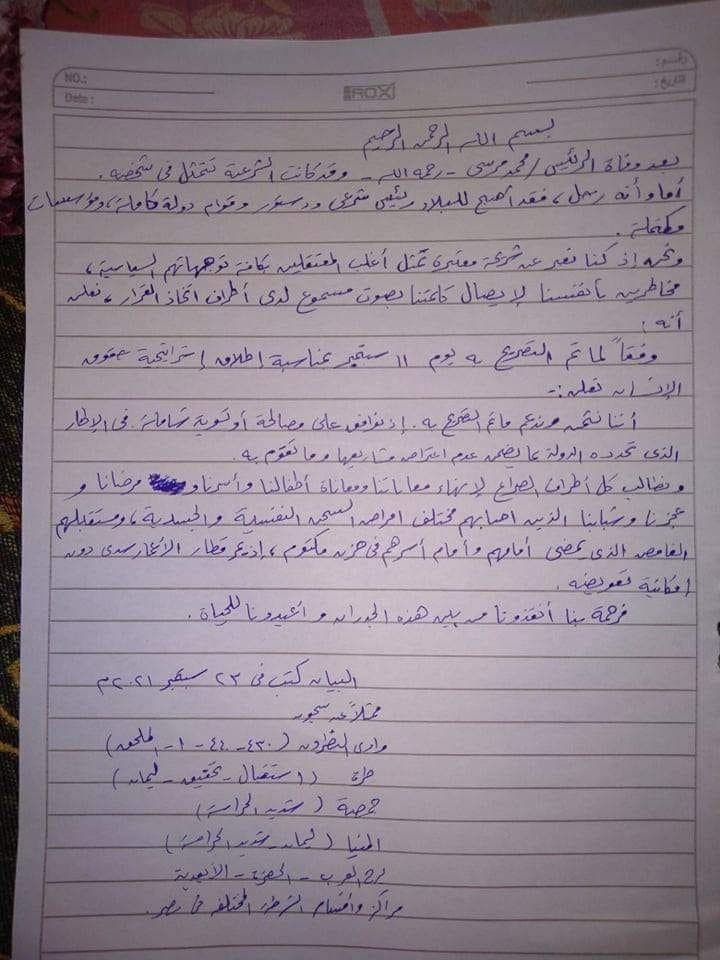 رقم:
NO.:
ROX
التاريخ:
Date :
بسم الله الرحمن الرحيم
بعد وفاة الرئيس / محمد مرسى - رحمه الله - وقد كانت الشرعية تتمثل فى شخصه .
أما وأنه رحل ، فقد أصبح للبلاد رئيس شرعى ودستور وقوام دولة كاملة ، ومؤسسات
مكتملة .
ونحن إذ كنا نعبر عن شريحة معتبرة تمثل أغلب المعتقلين بكافة توجهاتهم السياسية ،
مخاطرين بأنفسنا لإيصال كلمتنا بصوت مسموع لدى أطراف اتخاذ القرار ، نعلن
أنه :
وفقاً لما تم التصريح به يوم ١١ سبتمبر بمناسبة إطلاق إستراتيجية حقوق
الإنسان نعلن :-
أننا نثمن وندعم ماتم التصريح به . إذ نوافق على مصالحة أو تسوية شاملة . فى الإطار
الذى تحدده الدولة بما يضمن عدم اعتراض مشاريعها وما تقوم به .
ونطالب كل أطراف الصراع لإنهاء معاناتنا ومعاناة أطفالنا وأسرنا و مرضانا و
عجزنا وشبابنا الذين أصابهم مختلف امراض السجن النفسية والجسدية ، ومستقبلهم
الغامض الذى يمضى أمامهم وأمام أسرهم فى حزن مكتوم ، إذ يمر قطار الأعمار سدى دون
إمكانية تعويضه .
فرحمة بنا أنقذونا من بين هذه الجدران و أعيدونا للحياة .
البيان كتب فى ٢٣ سبتمبر ٢٠٢١ م
ممثلاً عن سجون
وادى النطرون ( ٤٣٠ - ٤٤٠ - ١ - الملحق )
طرة ( استقبال - تحقيق - ليمان )
جمصة ( شديد الحراسة )
المنيا ( ليمان - شديد الحراسة )
برج العرب - الحضرة - الأبعدية
مراكز واقسام الشرطة المختلفة فى مصر .